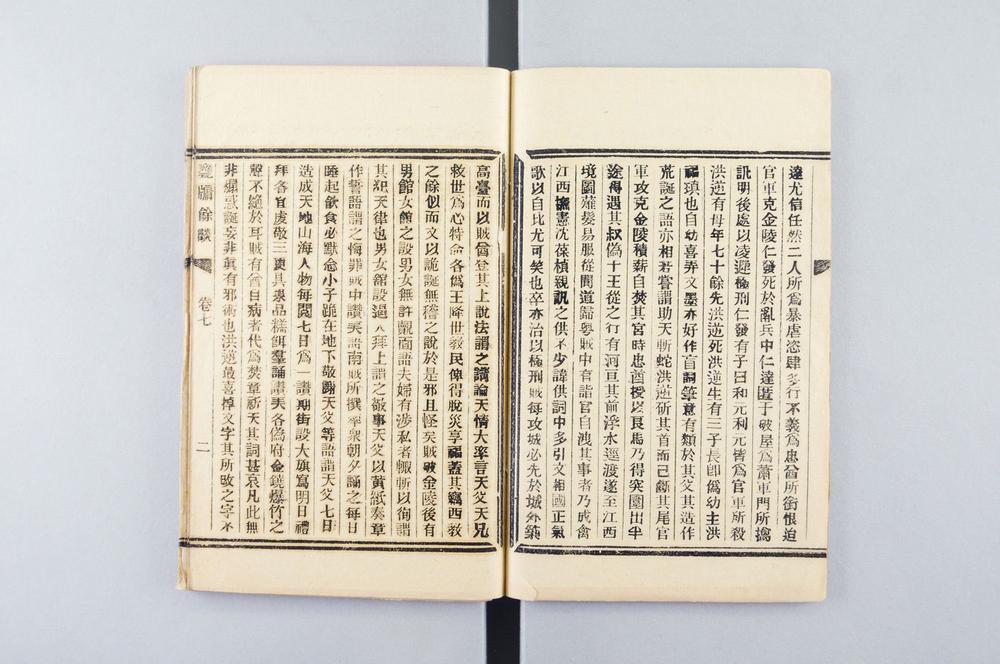 達尤信任然二人所為暴虐恣肆多行不義為忠酋所銜恨迨
官軍克金陵仁發死於亂兵中仁達匿于破屋為蕭軍門所擒
訊明後處以凌遲極刑仁發有子曰和元利元皆為官軍所殺
洪逆有母年七十餘先洪逆死洪逆生有三子長卽偽幼主洪
福瑱也自幼喜弄文墨亦好作盲詞筆意有類於其父其造作
荒誕之語亦相若嘗謂助天斬蛇洪逆斫其首而己斷其尾官
軍攻克金陵積薪自焚其宮時忠酋授以良馬乃得突圍出半
途得遇其叔偽干王從之行有河亘其前浮水逕渡遂至江西
境圖薙髮易服從間道歸粵賊中有詣官自洩其事者乃成禽
江西撫憲沈葆楨親訊之供不少諱供詞中多引文相國正氣
歌以自比尤可笑也卒亦治以極刑賊每攻城必先於城外築
高臺而以賊酋登其上說法謂之講論天情大率言天父天兄
救世為心特命各偽王降世敎民俾得脫災享福蓋其竊西敎
之餘似而文以詭誕無稽之說於是邪且怪矣賊破金陵後有
男館女館之設男女無許覿面語夫婦有涉私者輒斬以徇謂
其犯天律也男女館設過八拜上謂之敬事天父以黃紙奏章
作讐語謂之悔罪賊中讚美語南賊所撰率眾朝夕誦之每日
睡起飲食必默念小子跪在地下敬謝天父等語謂天父七日
造成天地山海人物每閱七日為一讚期街設大旗寫明日禮
拜各宜虔敬三更具果品糕餌羣誦讚美各偽府金鐃爆竹之
聲不絕於耳賊有曾自病者代為焚章祈天其詞甚哀凡此無
非煽惑誕妄非眞有邪術也洪逆最喜悼文字其所改之字不
甕牖餘談
卷七
二